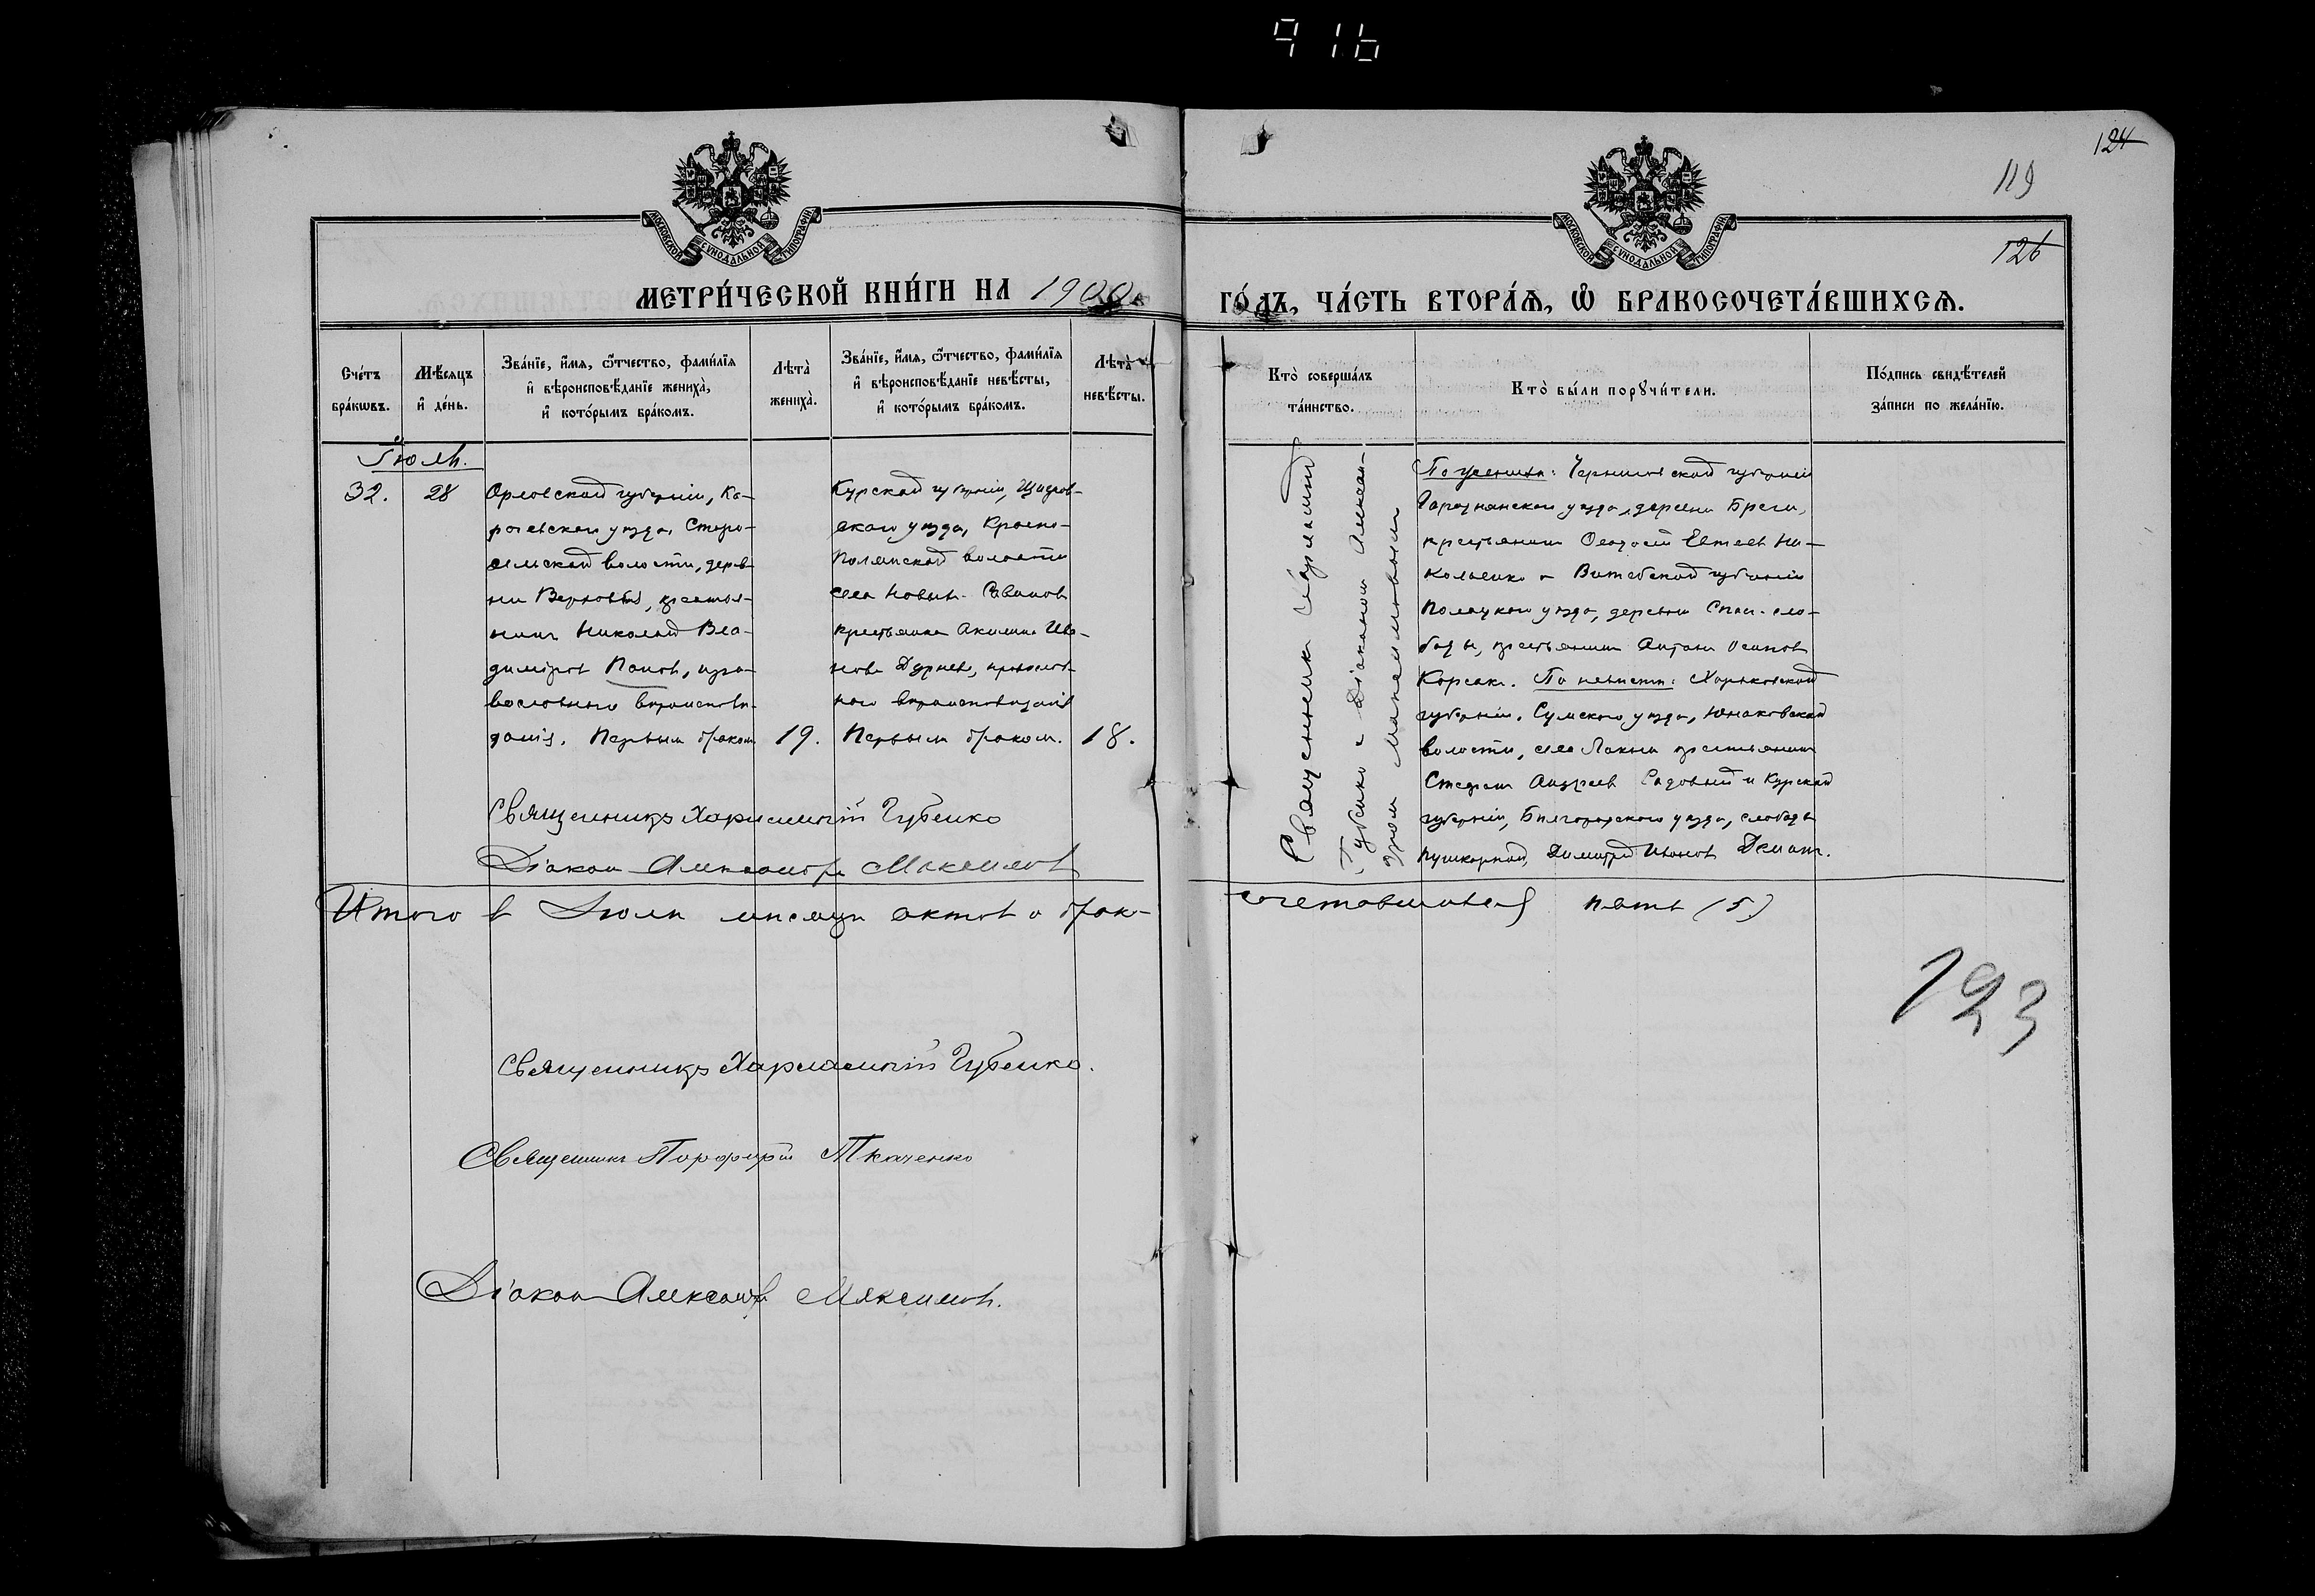 916
124
119
126
МОСКОВСКОЙ СѴНОДАЛЬНОЙ ТИПОГРАФІИ
МОСКОВСКОЙ СѴНОДАЛЬНОЙ ТИПОГРАФІИ
МЕТРИ́ЧЕСКОЙ КНИ́ГИ НА 1900
ГО́ДЪ, ЧА́СТЬ ВТОРА́Ѧ, Ѡ҆ БРАКОСОЧЕТА́ВШИХСѦ.
Сче́тъ бра́кѡвъ.
Мѣ́сяцъ и҆ де́нь.
Зва́нїе, и҆́мя, ѻ҆́тчество, фами́лїя
и҆ вѣроисповѣ́данїе жениха̀,
и҆ кото́рымъ бра́комъ.
Лѣта̀ жениха̀.
Зва́нїе, и҆́мя, ѻ҆́тчество, фами́лїя
и҆ вѣроисповѣ́данїе невѣ́сты,
и҆ кото́рымъ бра́комъ.
Лѣта̀ невѣ́сты.
Кто̀ соверша́лъ
та́инство.
Кто̀ бы́ли порꙋчи́тели.
По́дпись свидѣ́телей
за́писи по жела́нїю.
Іюль.
32.
28
Орловской губерніи, Ка-
рачевскаго уѣзда, Старо-
сельской волости, дерев-
ни, крестья-
нинъ Николай Вла-
диміровъ Поповъ, пра-
вославнаго вѣроисповѣ-
данія. Первымъ бракомъ
19.
Курской губерніи, Щигров-
скаго уѣзда, Красно-
Полянской волости
села Новыхъ Савиновъ
крестьянка Акилина Ива-
нова, православ-
наго вѣроисповѣданія
Первымъ бракомъ.
18.
Священникъ Харлампій
Губенко съ Діакономъ Алексан-
дромъ Максимовымъ
По женихѣ: Черниговской губерніи
Городнянскаго уѣзда, деревни
крестьянинъ Ѳеодосій Евтеевъ Ни-
коленко и Витебской губерніи
Полоцкаго уѣзда, деревни Спас-сло-
боды, крестьянинъ Антонъ Осиповъ
Корсакъ. По невѣстѣ: Харьковской
губерніи, Сумскаго уѣзда, Юнаковской
волости, села Локни крестьянинъ
Стефанъ Андреевъ Садовый и Курской
губерніи, Бѣлгородскаго уѣзда, слободы
Пушкарной, Димитрій Ивановъ
Священникъ Харлампій Губенко
Діаконъ Александръ Максимовъ
Итого въ Іюлѣ мѣсяцѣ актовъ о брако-
сочетавшихся пять (5)
193
Священникъ Харлампій Губенко.
Священникъ Порфирій Ткаченко
Діаконъ Александръ Максимовъ.